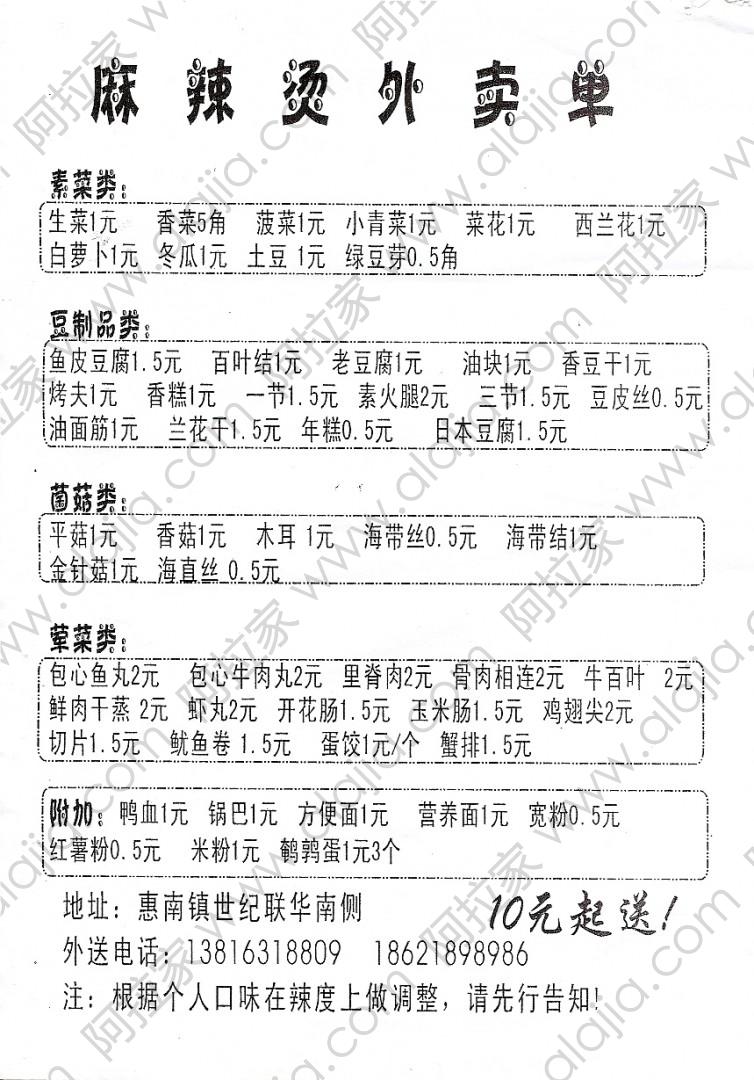 麻辣烫外卖单
素菜类：
生菜1元 香菜5角 菠菜1元 小青菜1元 菜花1元 西兰花1元
白萝卜1元 冬瓜1元 土豆 1元 绿豆芽0.5角
豆制品类：
鱼皮豆腐1.5元 百叶结1元 老豆腐1元 油块1元 香豆干1元
烤夫1元 香糕1元 一节1.5元 素火腿2元 三节1.5元 豆皮丝0.5元
油面筋1元 兰花干1.5元 年糕0.5元 日本豆腐1.5元
菌菇类：
平菇1元 香菇1元 木耳 1元 海带丝0.5元 海带结1元
金针菇1元 海直丝 0.5元
荤菜类：
包心鱼丸2元 包心牛肉丸2元 里脊肉2元 骨肉相连2元 牛百叶 2元
鲜肉干蒸 2元 虾丸2元 开花肠1.5元 玉米肠1.5元 鸡翅尖2元
切片1.5元 鱿鱼卷 1.5元 蛋饺1元/个 蟹排1.5元
附加：鸭血1元 锅巴1元 方便面1元 营养面1元 宽粉0.5元
红薯粉0.5元 米粉1元 鹌鹑蛋1元3个
地址：惠南镇世纪联华南侧 10元起送！
外送电话：13816318809 18621898986
注：根据个人口味在辣度上做调整，请先行告知！
阿拉家 www.alajia.com